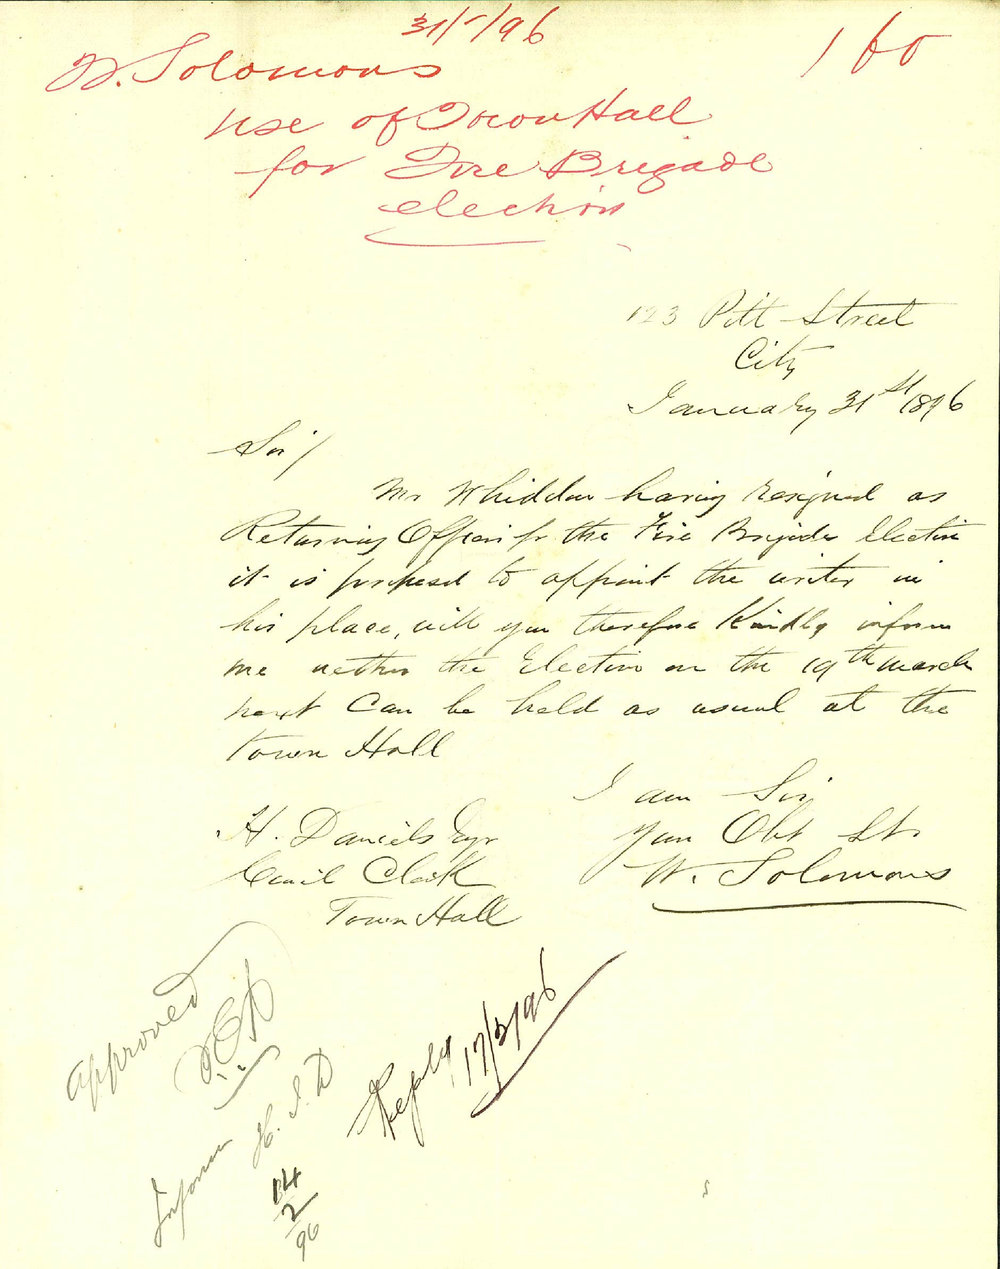 31/1/96
160
W. Solomons
use of Town Hall
for Fire Brigade
election
123 Pitt Street
City
January 31st 1896
Sir/
Mr Whiddon having resigned as
Returning Officer for the Fire Brigade Election
it is proposed to appoint the writer in
his place, will you therefore Kindly inform
me wether the Election on the 19th March
next Can be held as usual at the
Town Hall
I am Sir
Your Obt St.
W. Solomons
H. Daniels Esqr
Council Clerk
Town Hall
approved
Inform
H. J. D
14/2/96
Reply 17/2/96